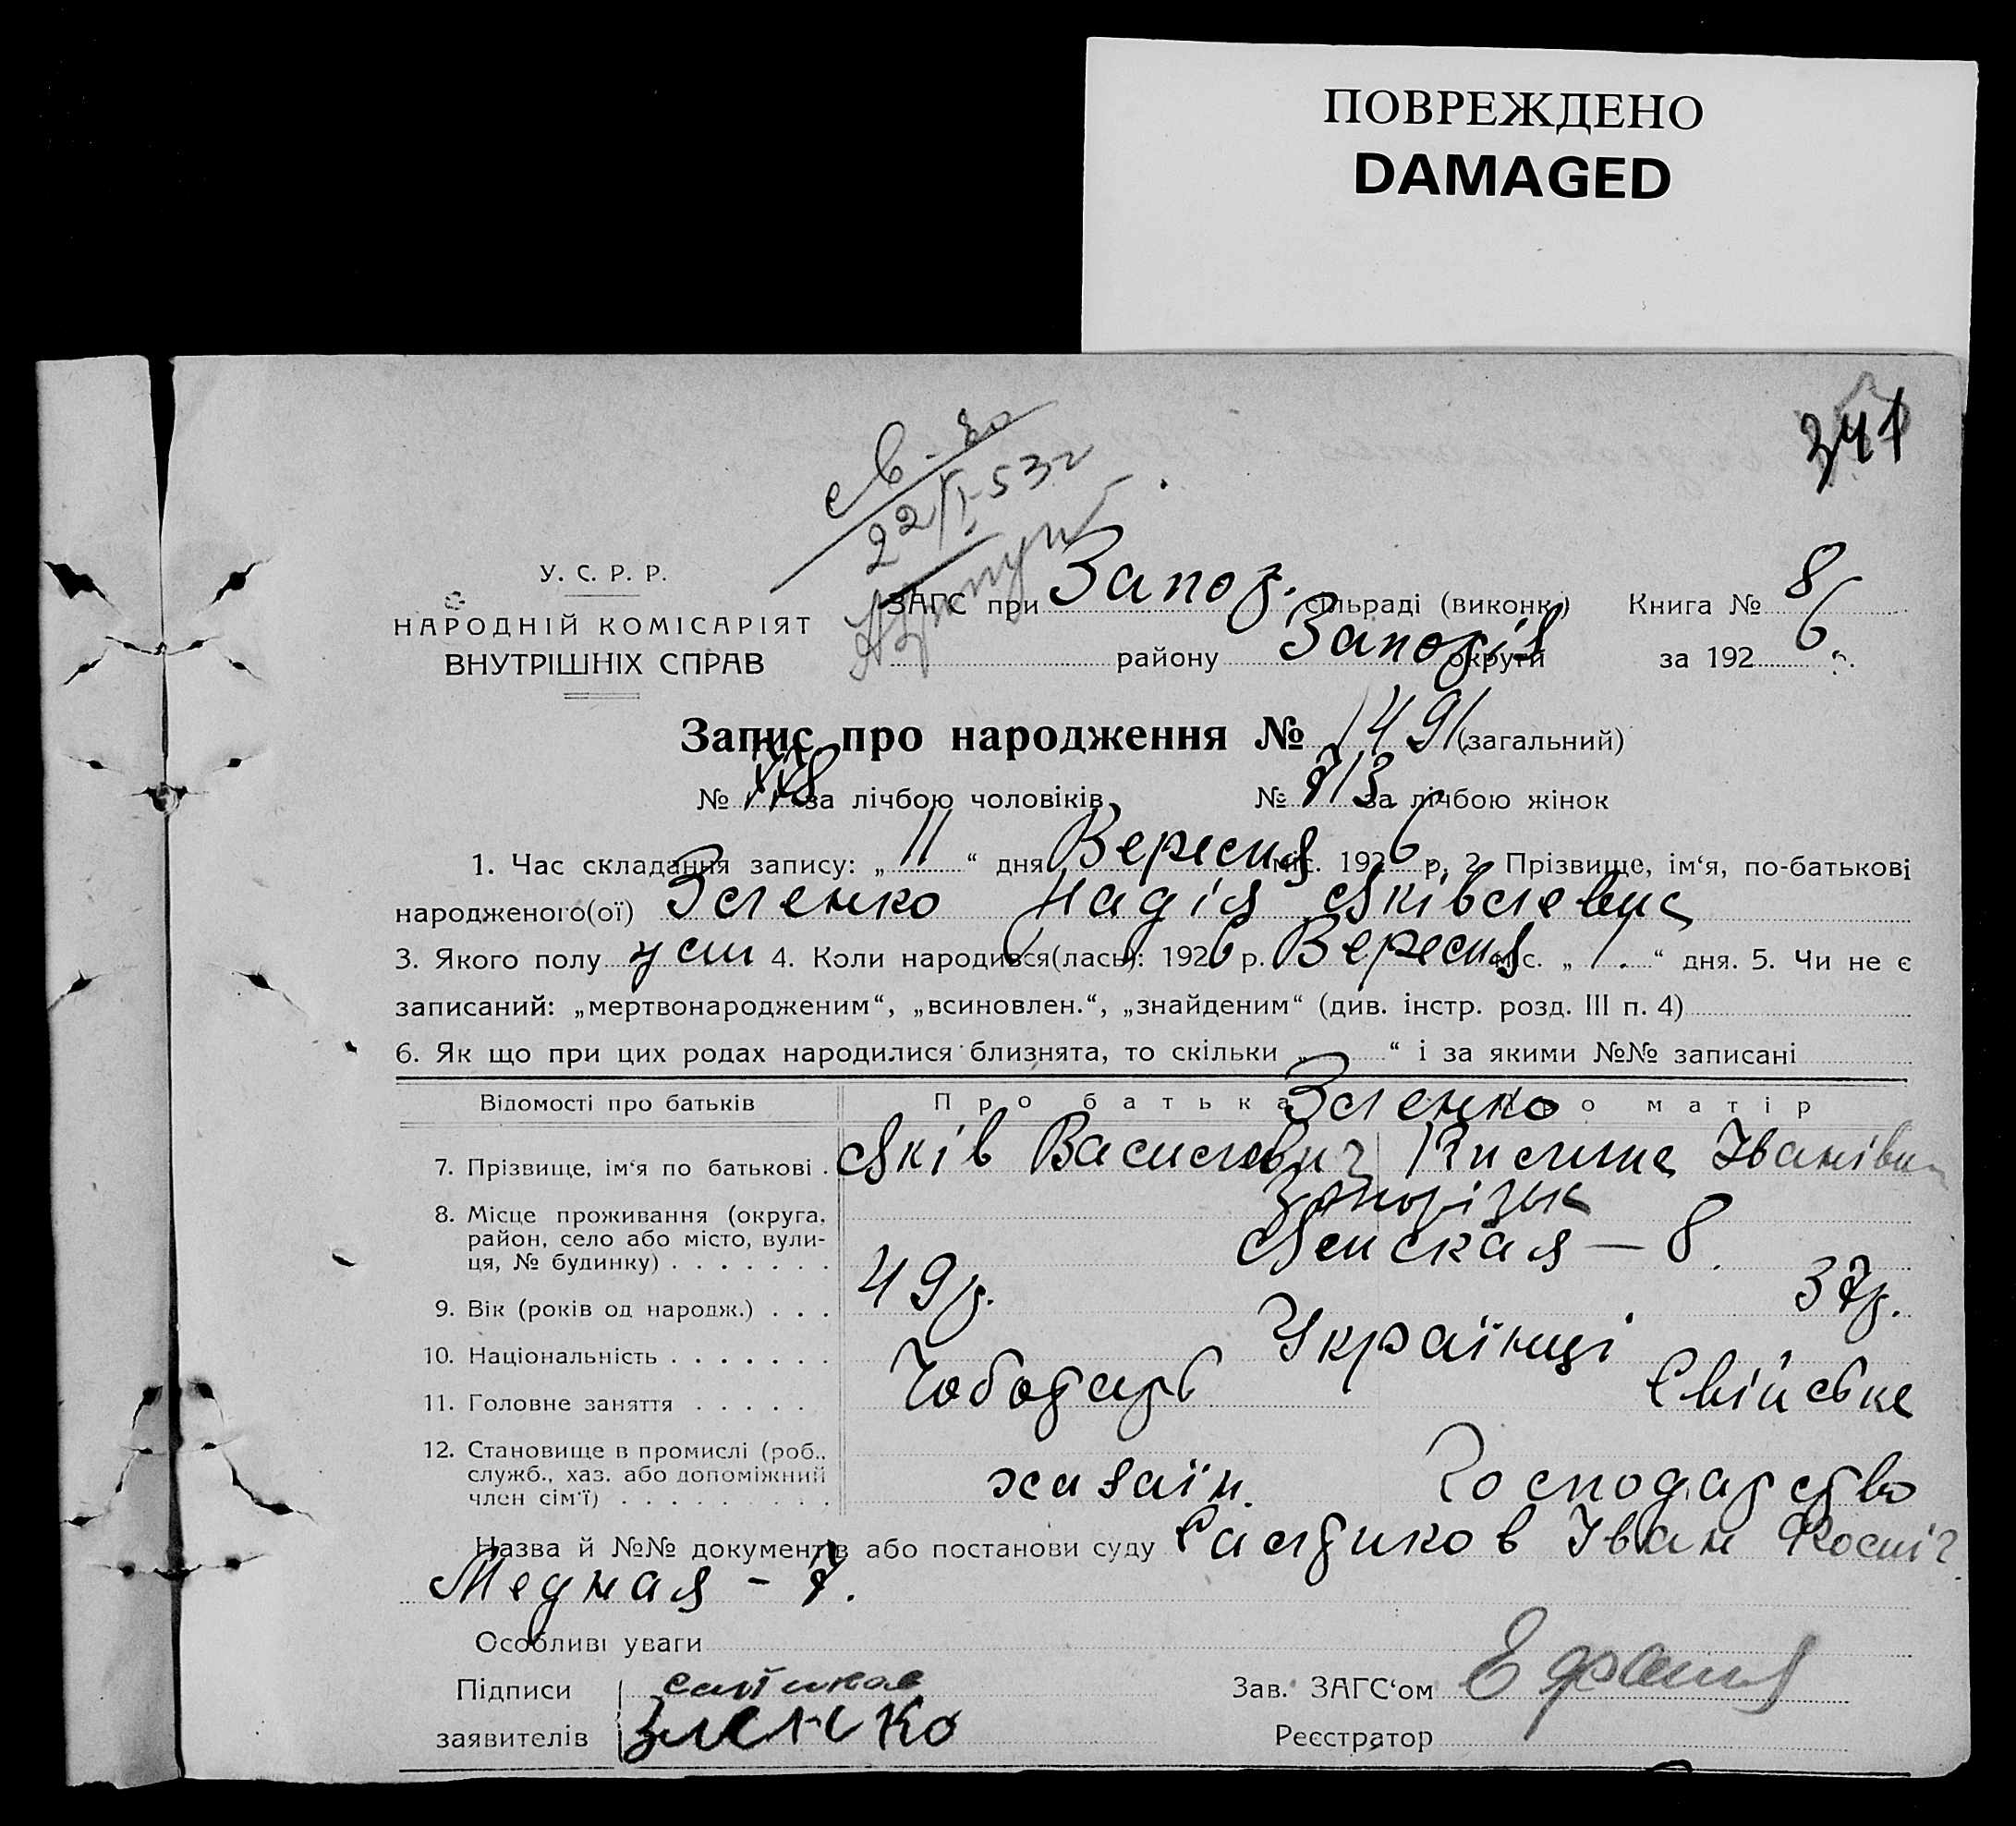 ПОВРЕЖДЕНО
DAMAGED
341
св-во
22/I-53г
У. С. Р. Р.
НАРОДНІЙ КОМІСАРІЯТ
ВНУТРІШНІХ СПРАВ
ЗАГС при Запор. сільраді (виконк.) Книга № 8
району Запоріз округи за 192 6 р.
Запис про народження № 1491 (загальний)
№ 778 за лічбою чоловіків № 713 за лічбою жінок
1. Час складання запису: „ 11 “ дня Вересня міс. 192 6 р. 2. Прізвище, ім‘я, по-батькові
народженого(ої) Зленко Надія Яківлевна
3. Якого полу 4. Коли народився(лась): 192 6 р. Вересня міс. „ 1. “ дня. 5. Чи не є
записаний: „мертвонародженим“, „всиновлен.“, „знайденим“ (див. інстр. розд. III п. 4)
6. Як що при цих родах народилися близнята, то скільки „ “ і за якими №№ записані
Відомості про батьків Про батька Про матір
Зленко
7. Прізвище, ім‘я по батькові . Яків Василевич Килина Іванівна
8. Місце проживання (округа, район, село або місто, вулиця, № будинку) . . . . . . . Запоріжж
8.
9. Вік (років од народж.) . . . 49р. 37р.
10. Національність . . . . . . . Українці
11. Головне заняття . . . . . Чоботарь Свійське
12. Становище в промислі (роб.,
служб., хаз. або допоміжний
член сім‘ї) . . . . . . . . . хазаїн. Господарство
Назва й №№ документів або постанови суду Салтиков Іван
Медная - 7.
Особливі уваги
Підписи Салтиков Зав. ЗАГС‘ом
заявителів Зленко Реєстратор